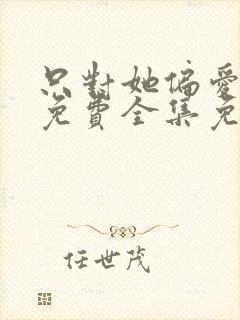 只對她偏愛
免費全集免
任世茂